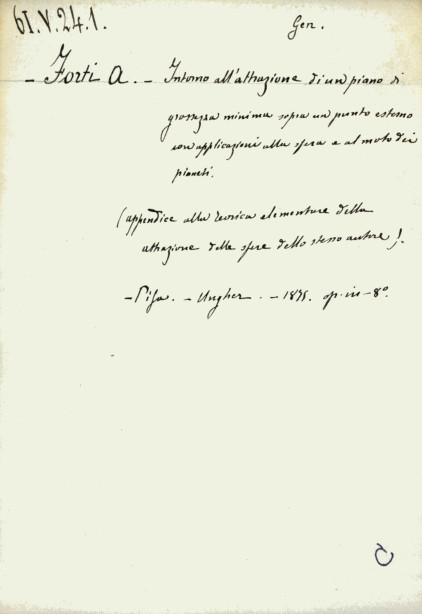 61.V.24.1.
Gen.
- Forti A. - Intorno all'attrazione di un piano di
grossezza minima sopra un punto esterno
con applicazioni alla sfera e al moto dei
pianeti.
(appendice alla teorica elementare della
attrazione delle sfere dello stesso autore).
- Pisa. - Ungher. - 1875. op. in-8º.